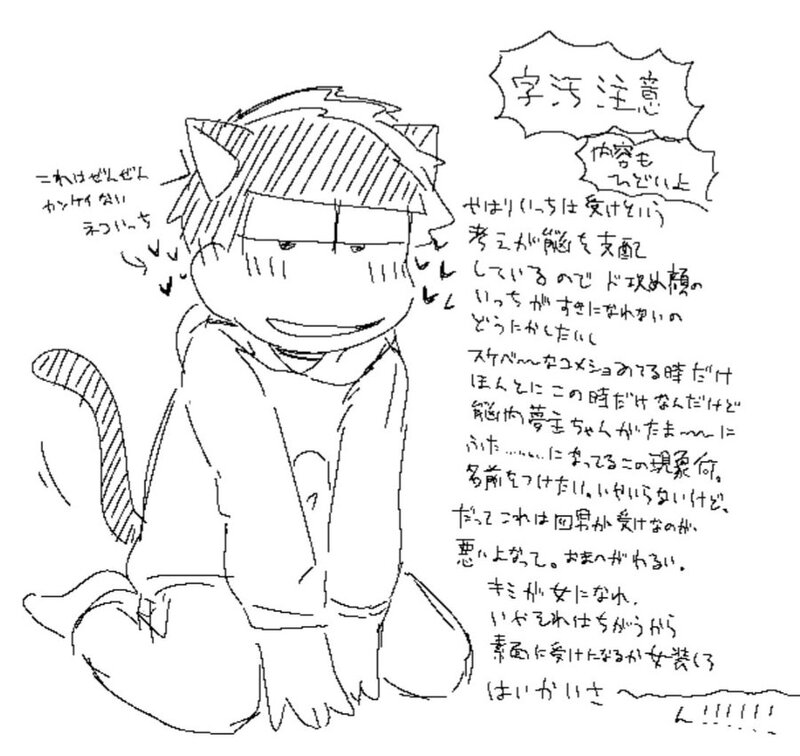 字汚注意
内容も
ひどいよ
これはぜんぜん
カンケイない
ネコいっち
やはりいっちは受けという
考えが脳を支配
しているので ド攻め顔の
いっちがすきになれないの
どうにかしたいし
スケベ〜〜なユメショみてる時だけ
ほんとにこの時だけなんだけど
脳内夢主ちゃんがたま〜〜に
ふた………になってるこの現象何。
名前をつけたい。いやいらないけど。
だってこれは四男が受けなのが、
悪いよなって。おまへがわるい。
キミが女になれ、
いやそれはちがうから
素直に受けになるか女装しろ
はいかいさ
ん!!!!!!